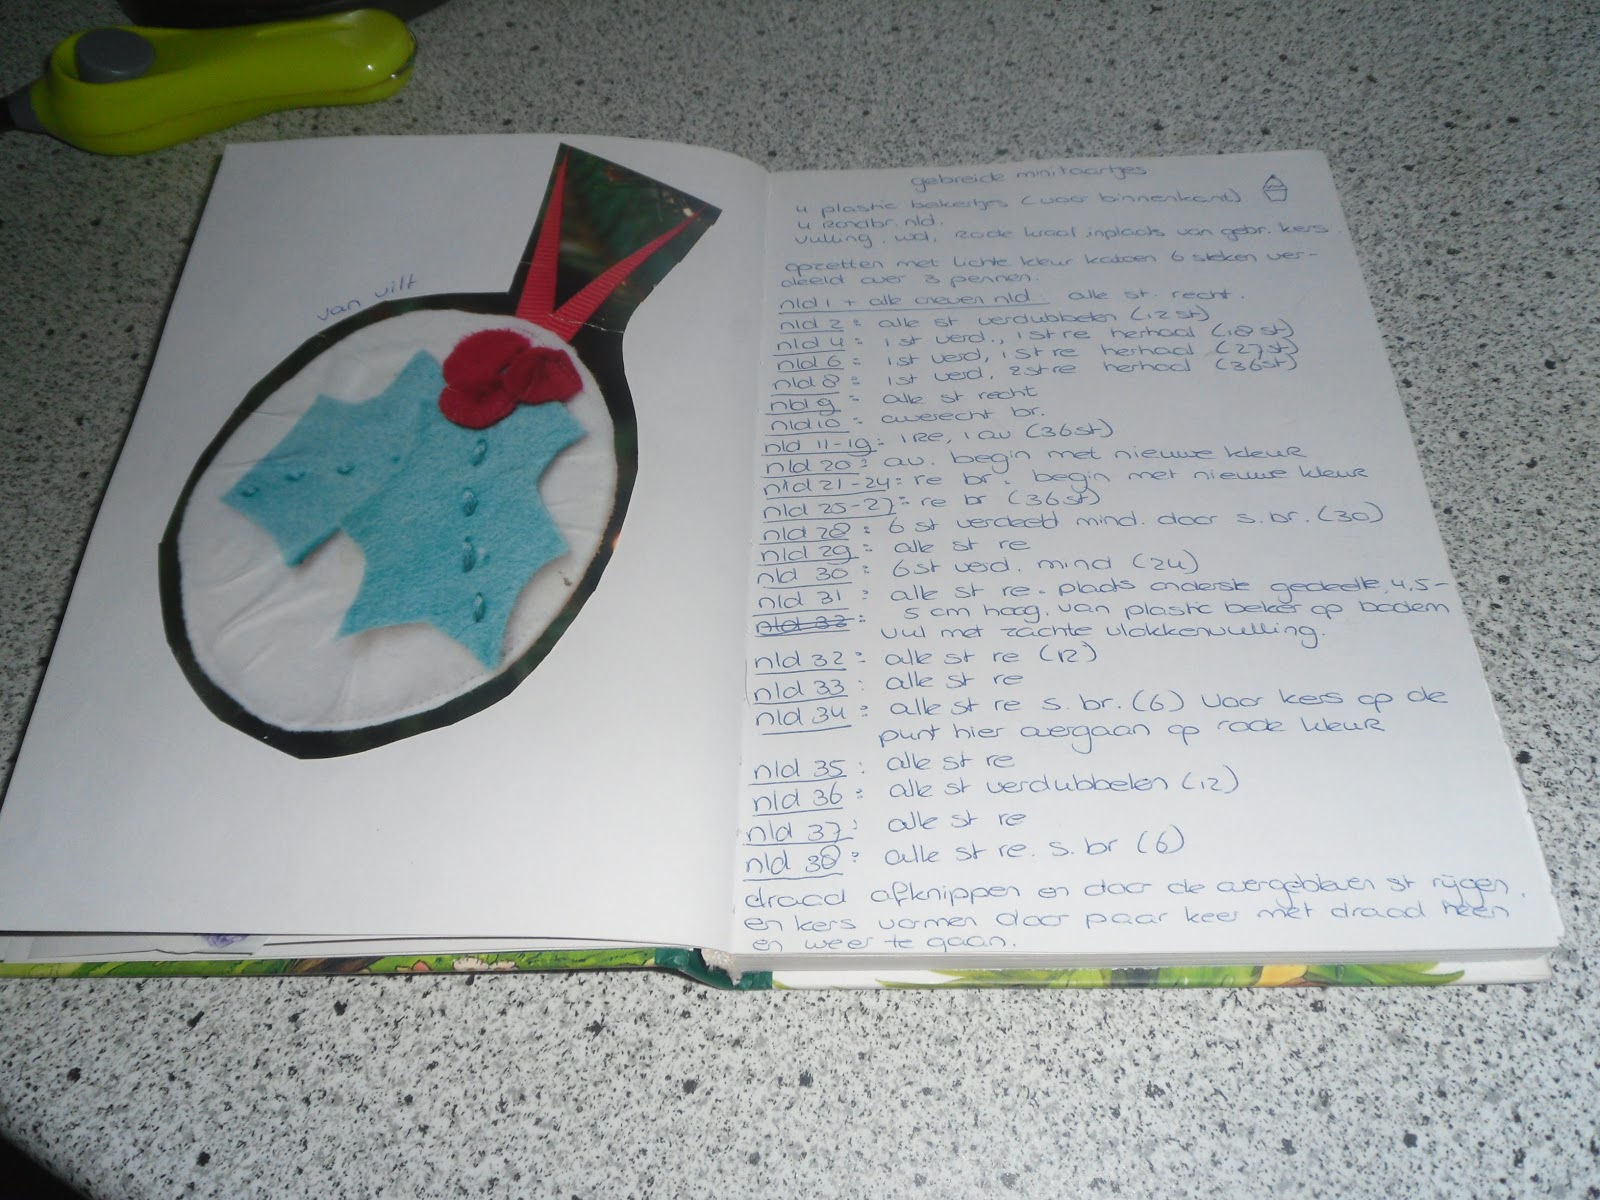 van vilt
gebreide minitaartjes
4 plastic bekertjes (voor binnenkant)
4 Rondbr. nld.
vulling, wd, rode kraal inplaats van gebr. kers.
opzetten met lichte kleur katoen 6 steken ver-
deeld over 3 pennen.
nld 1 + alle oneven nld alle st. recht.
nld 2: alle st verdubbelen (12st)
nld 4: 1 st verd., 1 st re herhaal (18 st)
nld 6: 1 st verd, 1 st re herhaal (27st)
nld 8: 1st verd, 2st re herhaal (36st)
nld 9: alle st recht
nld 10: averecht br.
nld 11-19: 1 Re, 1 av (36st)
nld 20: av. begin met nieuwe kleur
nld 21-24: re br. begin met nieuwe kleur
nld 25-27: re br (36st)
nld 28: 6 st verdeeld mind. door s. br. (30)
nld 29: alle st re
nld 30: 6 st verd. mind (24)
nld 31: alle st re. plaats onderste gedeelte, 4,5-
nld 32: 5 cm hoog, van plastic beker op bodem
vul met zachte vlokkenvulling.
nld 32: alle st re (12)
nld 33: alle st re
nld 34: alle st re s. br. (6) Voor kers op de
punt hier overgaan op rode kleur
nld 35: alle st re
nld 36: alle st verdubbelen (12)
nld 37: alle st re
nld 38: alle st re. s. br (6)
draad afknippen en door de overgebleven st rijgen.
en kers vormen door paar keer met draad heen
en weer te gaan.